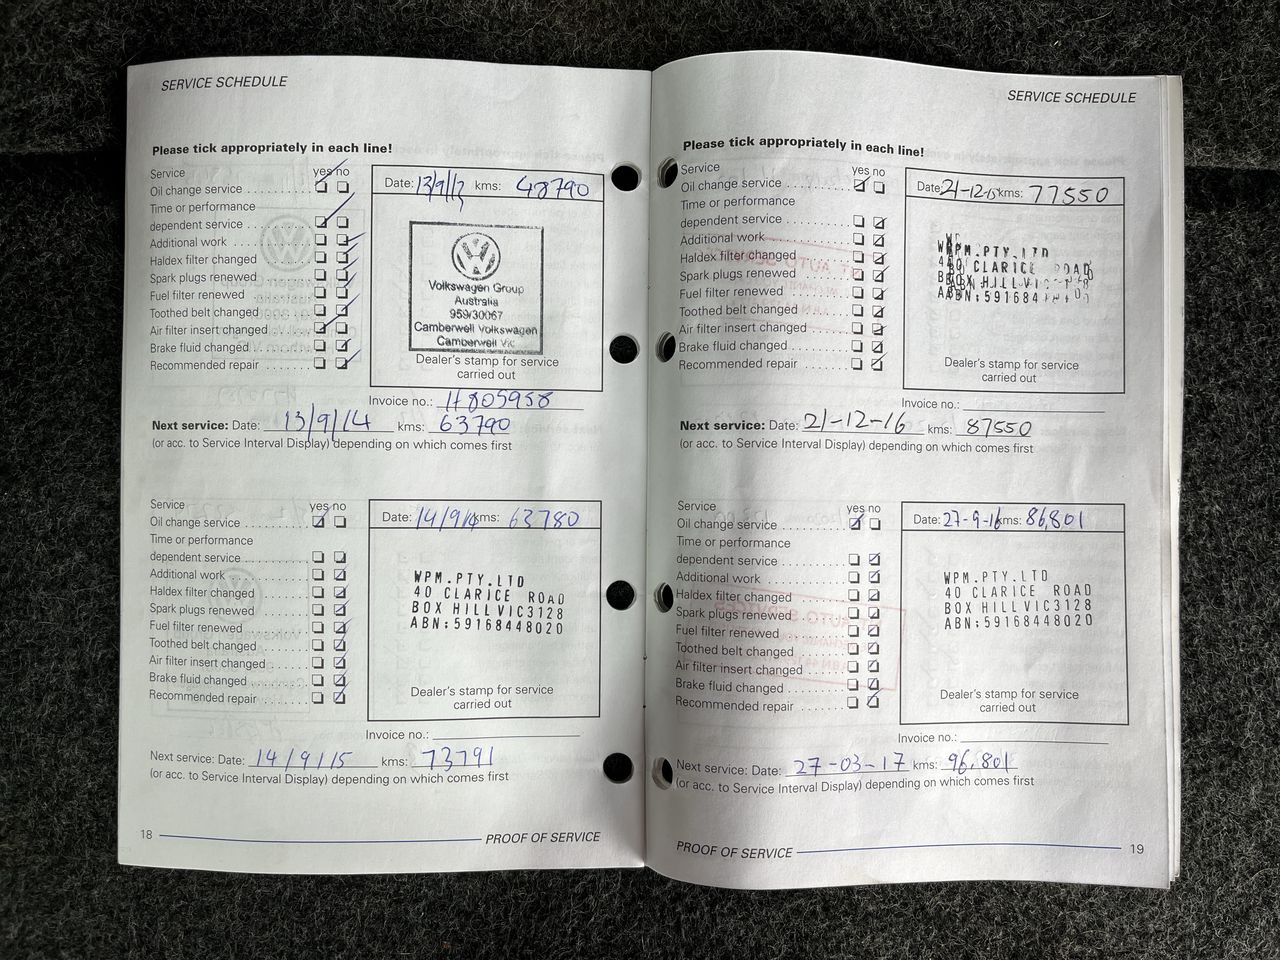 SERVICE SCHEDULE
Please tick appropriately in each line!
Service yes no
Oil change service
Time or performance
dependent service
Additional work
Haldex filter changed
Spark plugs renewed
Fuel filter renewed
Toothed belt changed
Air filter insert changed
Brake fluid changed
Recommended repair
Date: 13/9/13 kms: 48790
Volkswagen Group
Australia
959/30067
Camberwell Volkswagen
Camberwell Vic
Dealer's stamp for service
carried out
Invoice no.: 11805958
Next service: Date: 13/9/14 kms: 63790
(or acc. to Service Interval Display) depending on which comes first
Service yes no
Oil change service
Time or performance
dependent service
Additional work
Haldex filter changed
Spark plugs renewed
Fuel filter renewed
Toothed belt changed
Air filter insert changed
Brake fluid changed
Recommended repair
Date: 14/9/14 kms: 63780
WPM.PTY.LTD
40 CLARICE ROAD
BOX HILL VIC3128
ABN:59168448020
Dealer's stamp for service
carried out
Invoice no.:
Next service: Date: 14/9/15 kms: 73791
(or acc. to Service Interval Display) depending on which comes first
18 PROOF OF SERVICE
SERVICE SCHEDULE
Please tick appropriately in each line!
Service yes no
Oil change service
Time or performance
dependent service
Additional work
Haldex filter changed
Spark plugs renewed
Fuel filter renewed
Toothed belt changed
Air filter insert changed
Brake fluid changed
Recommended repair
Date: 21-12-15 kms: 77550
WPM.PTY.LTD
40 CLARICE ROAD
BOX HILL VIC
ABN:591684
Dealer's stamp for service
carried out
Invoice no.:
Next service: Date: 21-12-16 kms: 87550
(or acc. to Service Interval Display) depending on which comes first
Service yes no
Oil change service
Time or performance
dependent service
Additional work
Haldex filter changed
Spark plugs renewed
Fuel filter renewed
Toothed belt changed
Air filter insert changed
Brake fluid changed
Recommended repair
Date: 27-9-16 kms: 86,801
WPM.PTY.LTD
40 CLARICE ROAD
BOX HILL VIC3128
ABN:59168448020
Dealer's stamp for service
carried out
Invoice no.:
Next service: Date: 27-03-17 kms: 96,801
(or acc. to Service Interval Display) depending on which comes first
PROOF OF SERVICE 19